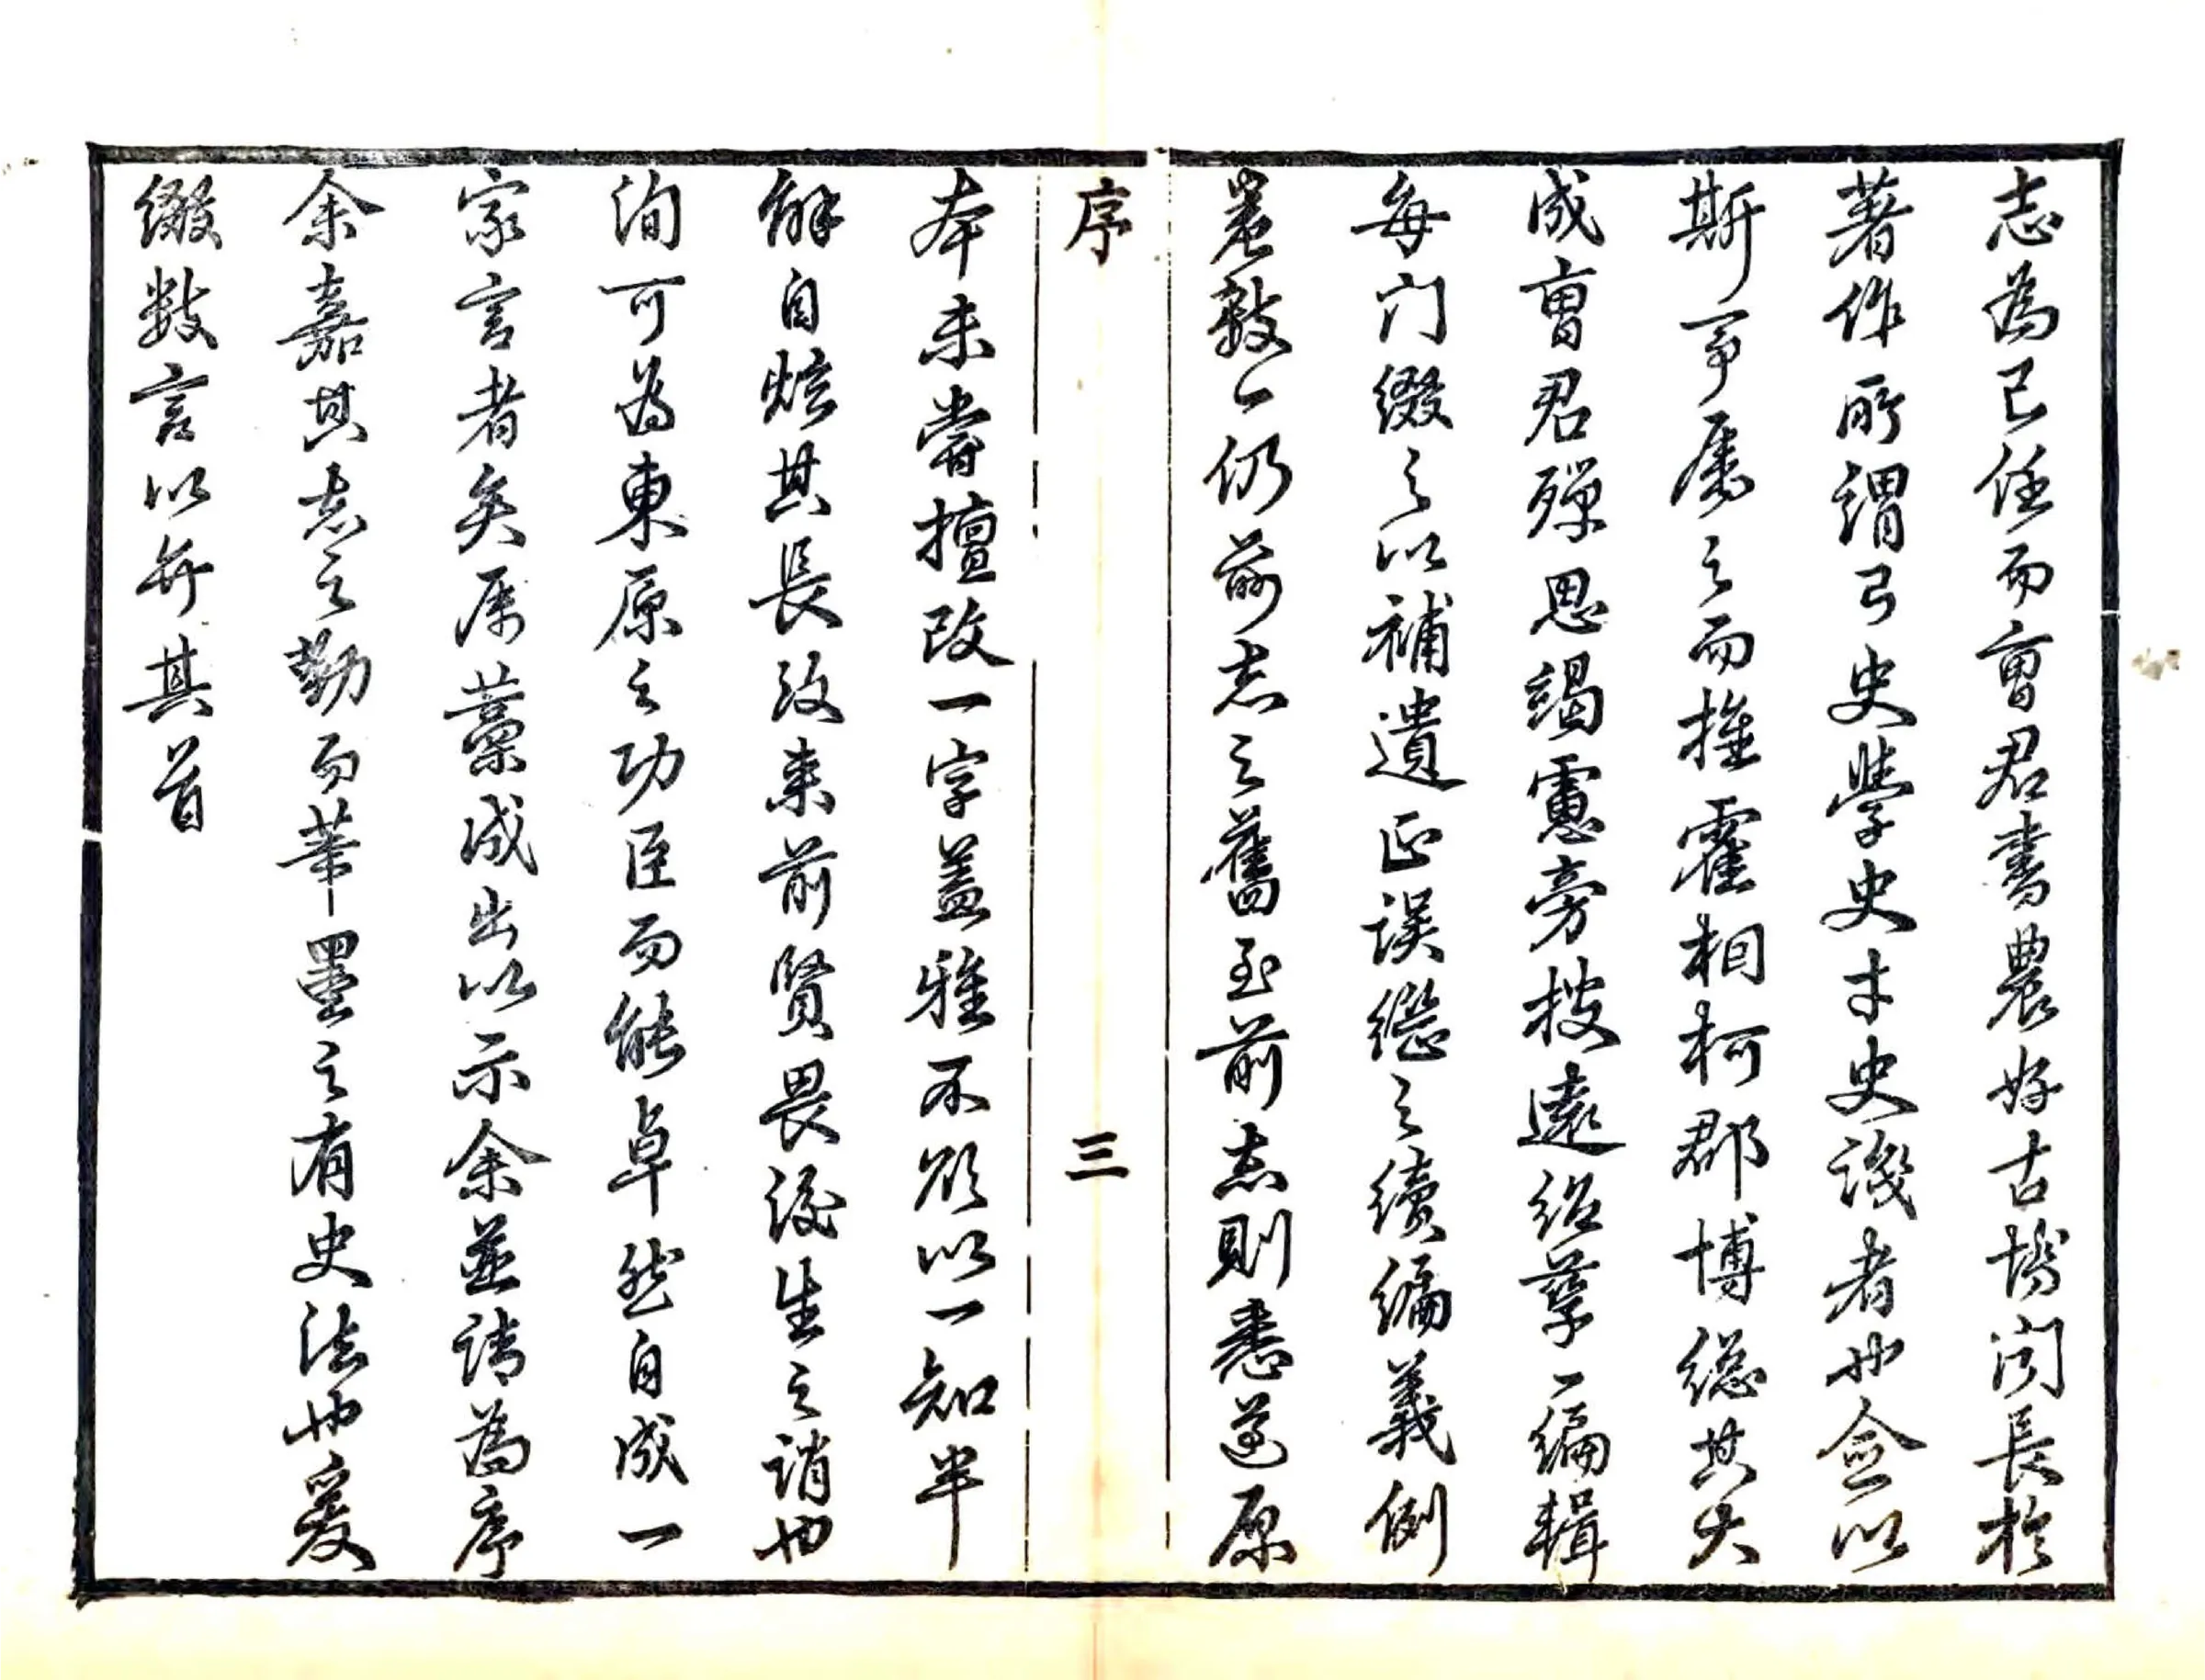 志為己任而曹君書農好古博聞長於
著作所謂弓史學史才史識者也僉以
斯事屬之而推霍相柯郡博總其大
成曹君殫思竭慮旁搜遠紹擎一編輯
每門綴之以補遺正誤繼之續編義例
嚴整一仍前志之舊至前志則悉遵原
序 三
本未嘗擅改一字蓋雅不欲以一知半
解自炫其長致來前賢畏後生之誚也
洵可為東原之功臣而能卓然自成一
家言者矣屬藁成出以示余並請為序
余嘉其志之勤而筆墨之有史法也爰
綴數言以弁其首